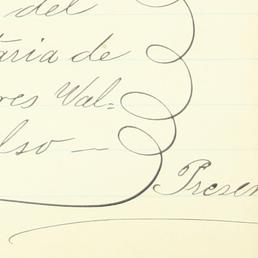 del
taria de
res Val=
lso —
Presen